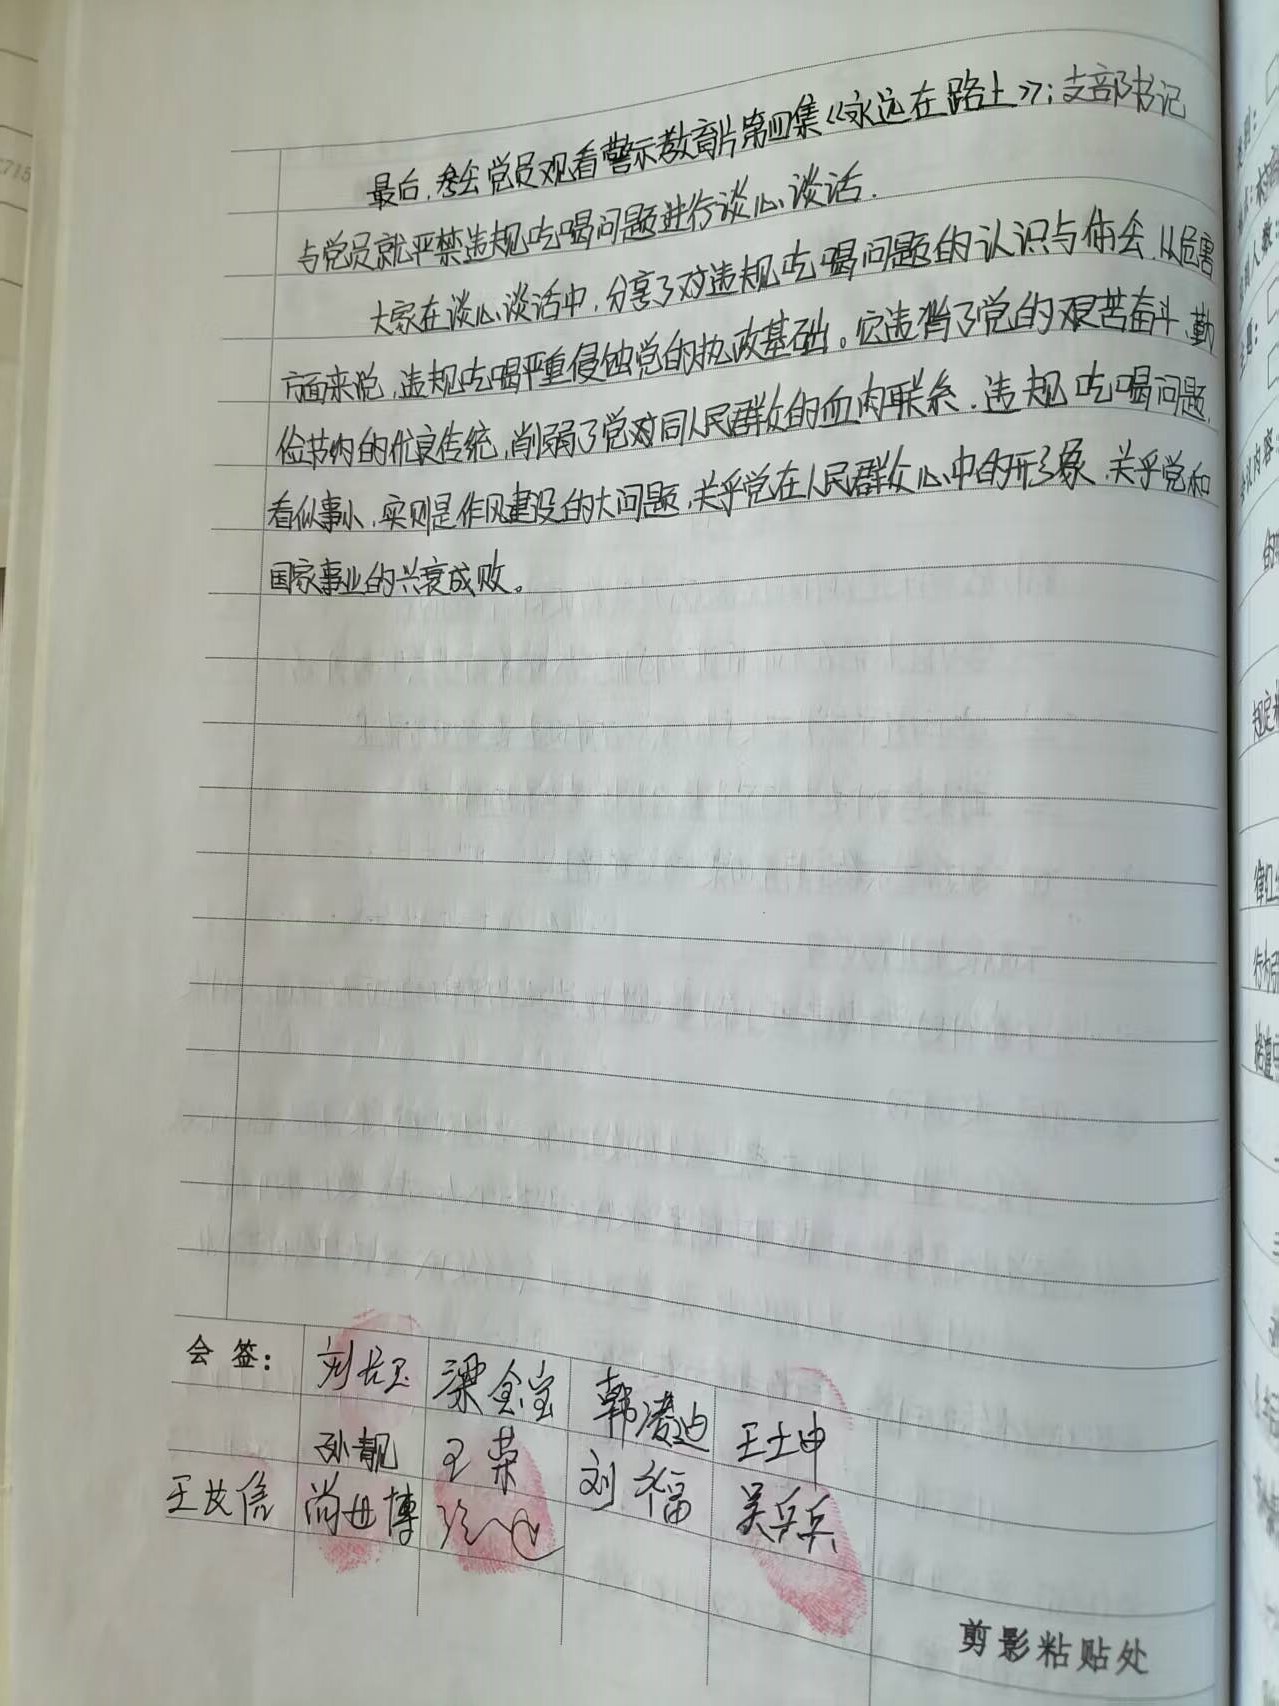 最后,参会党员观看警示教育片第四集《永远在路上》;支部书记
与党员就严禁违规吃喝问题进行谈心谈话.
大家在谈心谈话中,分享了对违规吃喝问题的认识与体会.从危害
方面来说,违规吃喝严重侵蚀党的执政基础。它违背了党的艰苦奋斗、勤
俭节约的优良传统,削弱了党对同人民群众的血肉联系.违规吃喝问题,
看似事小,实则是作风建设的大问题,关乎党在人民群众心中的形象,关乎党和
国家事业的兴衰成败。
会 签:
梁金宝
韩凌迪
王士申
孙靓
王荣
刘福
吴兵兵
尚世博
剪影粘贴处
规定